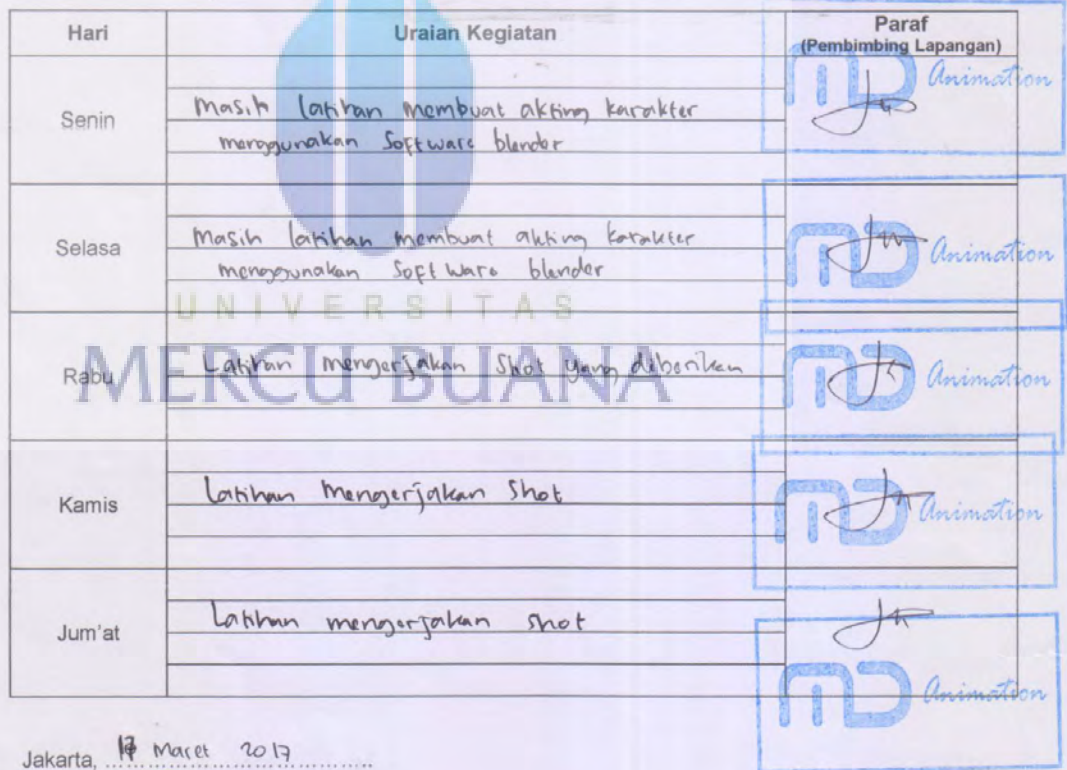 Hari Uraian Kegiatan Paraf
(Pembimbing Lapangan)
MD Animation
Senin Masih latihan membuat akting karakter
menggunakan Software blender
Selasa Masih latihan membuat akting karakter
menggunakan Software blender
MD Animation
UNIVERSITAS
MERCU BUANA
Rabu Latihan mengerjakan Shot yang diberikan
MD Animation
Kamis Latihan Mengerjakan Shot
MD Animation
Jum'at Latihan mengerjakan shot
MD Animation
Jakarta, Maret 2017